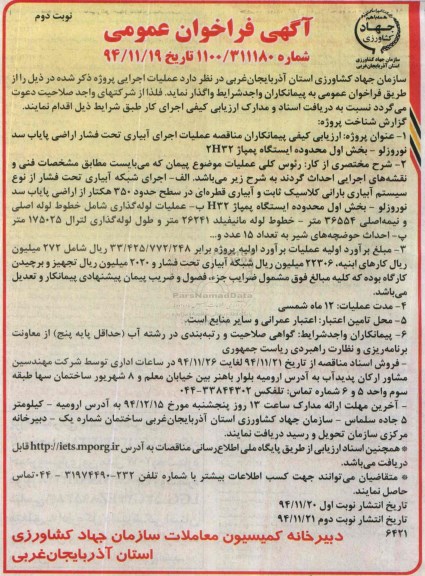 نوبت دوم
جهاد کشاورزی
سازمان جهاد کشاورزی
استان آذربایجان غربی
آگهی فراخوان عمومی
شماره ۱۱۰۰/۳۱۱۱۸۰ تاریخ ۹۴/۱۱/۱۹
سازمان جهاد کشاورزی استان آذربایجان‌غربی در نظر دارد عملیات اجرایی پروژه ذکر شده در ذیل را از
طریق فراخوان عمومی به پیمانکاران واجدشرایط واگذار نماید. فلذا از شرکتهای واجد صلاحیت دعوت
می‌گردد نسبت به دریافت اسناد و مدارک ارزیابی کیفی اجرای کار طبق شرایط ذیل اقدام نمایند.
گزارش شناخت پروژه:
۱- عنوان پروژه: ارزیابی کیفی پیمانکاران مناقصه عملیات اجرای آبیاری تحت فشار اراضی پایاب سد
نوروزلو - بخش اول محدوده ایستگاه پمپاژ ۲H۳۲
۲- شرح مختصری از کار: رئوس کلی عملیات موضوع پیمان که می‌بایست مطابق مشخصات فنی و
نقشه‌های اجرایی احداث گردند به شرح زیر می‌باشد. الف- اجرای شبکه آبیاری تحت فشار از نوع
سیستم آبیاری بارانی کلاسیک ثابت و آبیاری قطره‌ای در سطح حدود ۳۵۰ هکتار از اراضی پایاب سد
نوروزلو - بخش اول محدوده ایستگاه پمپاژ H۳۲ ب- عملیات لوله‌گذاری شامل خطوط لوله اصلی
و نیمه‌اصلی ۳۶۵۵۴ متر - خطوط لوله مانیفیلد ۲۶۲۴۱ متر و طول لوله‌گذاری لترال ۱۷۵۰۲۵ متر
پ- احداث حوضچه‌های شیر به تعداد ۱۵ عدد و...
۳- مبلغ برآورد اولیه عملیات برآورد اولیه پروژه برابر ۳۳/۴۲۵/۷۷۲/۲۴۸ ریال شامل ۲۷۲ میلیون
ریال کارهای ابنیه، ۲۲۳۰۶ میلیون ریال شبکه آبیاری تحت فشار و ۲۰۲۰ میلیون ریال تجهیز و برچیدن
کارگاه بوده که کلیه مبالغ فوق مشمول ضرایب جزء، فصول و ضریب پیمان پیشنهادی پیمانکار و تعدیل
می‌باشد.
۴- مدت عملیات: ۱۲ ماه شمسی
۵- محل تامین اعتبار: اعتبار عمرانی و سایر منابع است.
۶- پیمانکاران واجدشرایط: گواهی صلاحیت و رتبه‌بندی در رشته آب (حداقل پایه پنج) از معاونت
برنامه‌ریزی و نظارت راهبردی ریاست جمهوری
- فروش اسناد مناقصه از تاریخ ۹۴/۱۱/۲۱ لغایت ۹۴/۱۱/۲۶ در ساعات اداری توسط شرکت مهندسین
مشاور ارکان پدیدآب به آدرس ارومیه بلوار باهنر بین خیابان معلم و ۸ شهریور ساختمان سها طبقه
سوم واحد ۵ و ۶ شماره تماس: تلفکس ۳۳۸۴۴۳۰۲-۰۴۴
- آخرین مهلت ارائه مدارک ساعت ۱۳ روز پنجشنبه مورخ ۹۴/۱۲/۱۵ به آدرس ارومیه - کیلومتر
۵ جاده سلماس - سازمان جهاد کشاورزی استان آذربایجان‌غربی ساختمان شماره یک - دبیرخانه
مرکزی سازمان تحویل و رسید دریافت نمایند.
* همچنین اسناد ارزیابی از طریق پایگاه ملی اطلاع‌رسانی مناقصات به آدرس http://iets.mporg.ir قابل
دریافت می‌باشد.
* متقاضیان می‌توانند جهت کسب اطلاعات بیشتر با شماره تلفن ۲۳۲-۳۱۹۷۴۴۹۰ - ۰۴۴ تماس
حاصل نمایند.
تاریخ انتشار نوبت اول ۹۴/۱۱/۲۰
تاریخ انتشار نوبت دوم ۹۴/۱۱/۲۱
۶۴۲۱
دبیرخانه کمیسیون معاملات سازمان جهاد کشاورزی
استان آذربایجان‌غربی